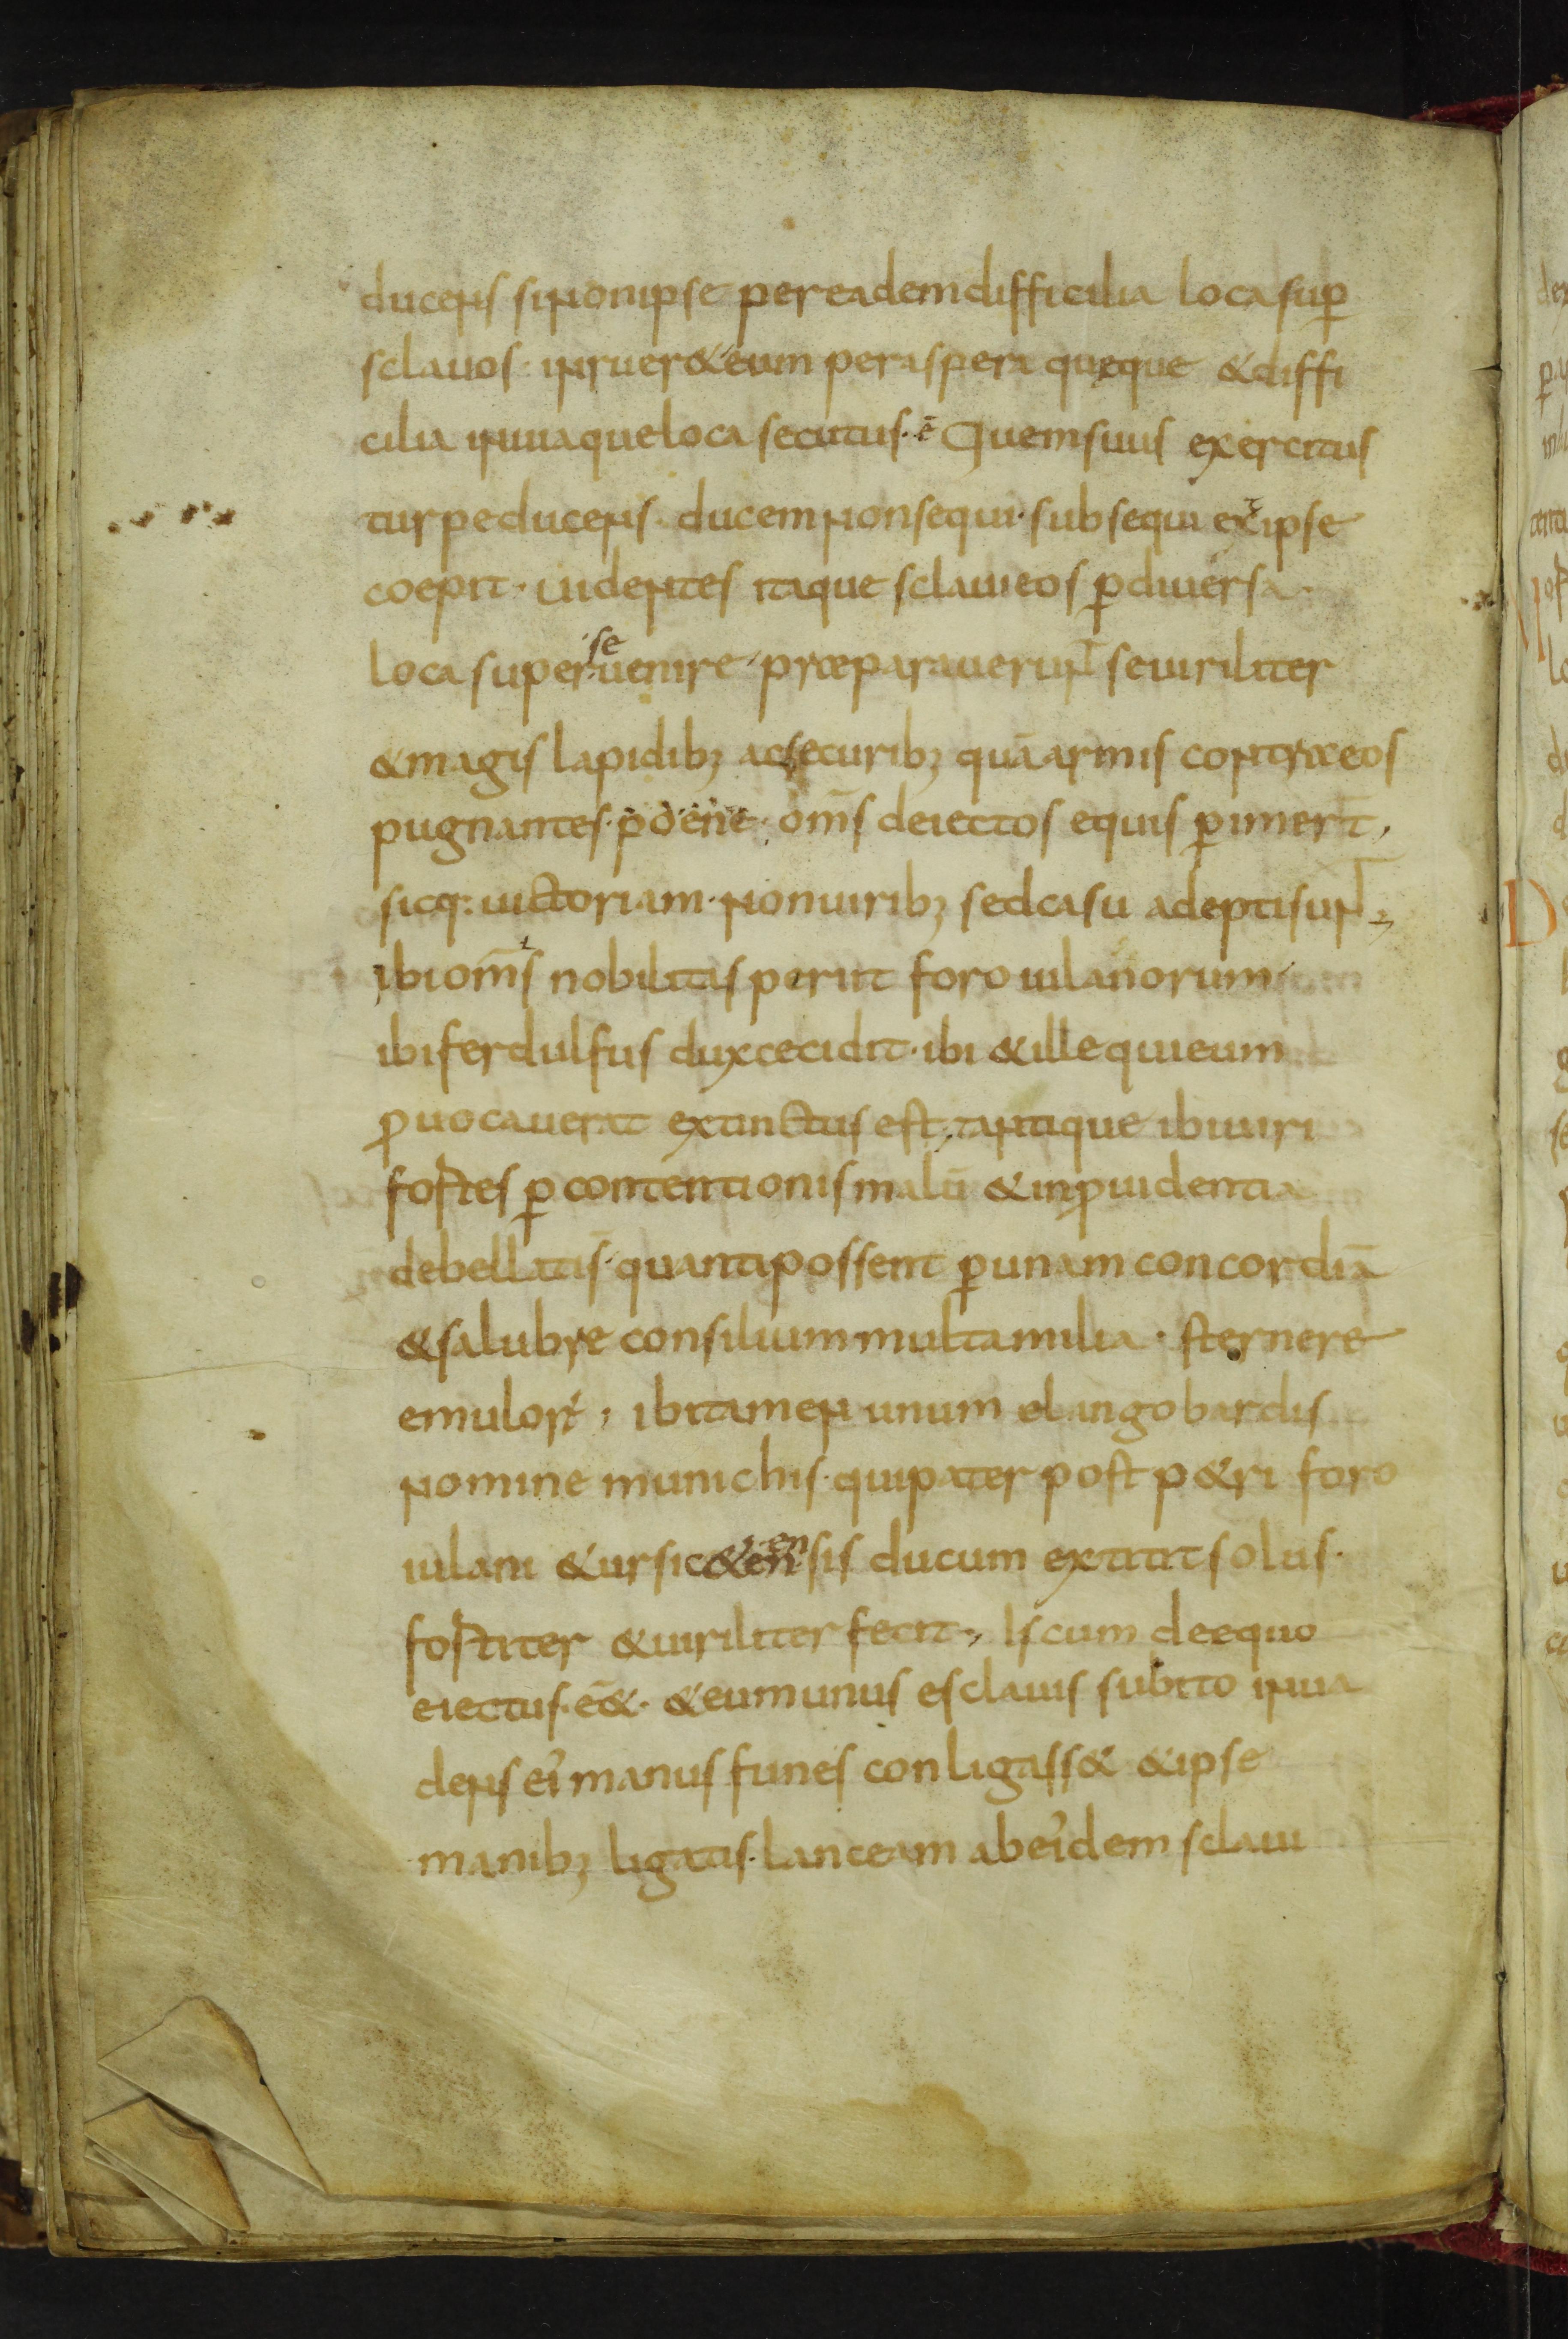 ducens si non ipse per eadem difficilia loca sup̄
sclauos· inruer& eum per aspera queque & diffi
cilia inuiaque loca secutus·ē Quem suus exercitus
turpe ducens· ducem non sequi· subsequi et ipse
coepit· uidentes itaque sclaui eos ꝑ diuersa
loca super se uenire· præparauerunt se uiriliter
& magis lapidibꝫ ac securibꝫ quā armis contra eos
pugnantes· pene· om̄s deiectos equis ꝑimerт̄,
sicq: uictoriam· non uiribꝫ sed casu adepti sunt;
ibi om̄is nobilitas periit foroiulanorum
ibi ferdulfus dux cecidit· ibi & ille qui eum
ꝓuocauerat extinctus est; tantique ibi uiri
fortes ꝑ contentionis malū & inꝓuidentia
debellatis· quanti possent ꝑ unam concordiā
& salubre consilium multa milia· sternere
emulorum; ibi tamen unum e langobardis
nomine munichis· qui pater post p&ri foro
iulani & ursi c&en en sis ducum extitit solus·
fortiter & uiriliter fecit; Is cum de equo
eiectus· ēé· & eum unus e sclauis subito inua
dens ei' manus funes conligass& & ipse
manibꝫ ligatis· lanceam ab ei'dem sclaui